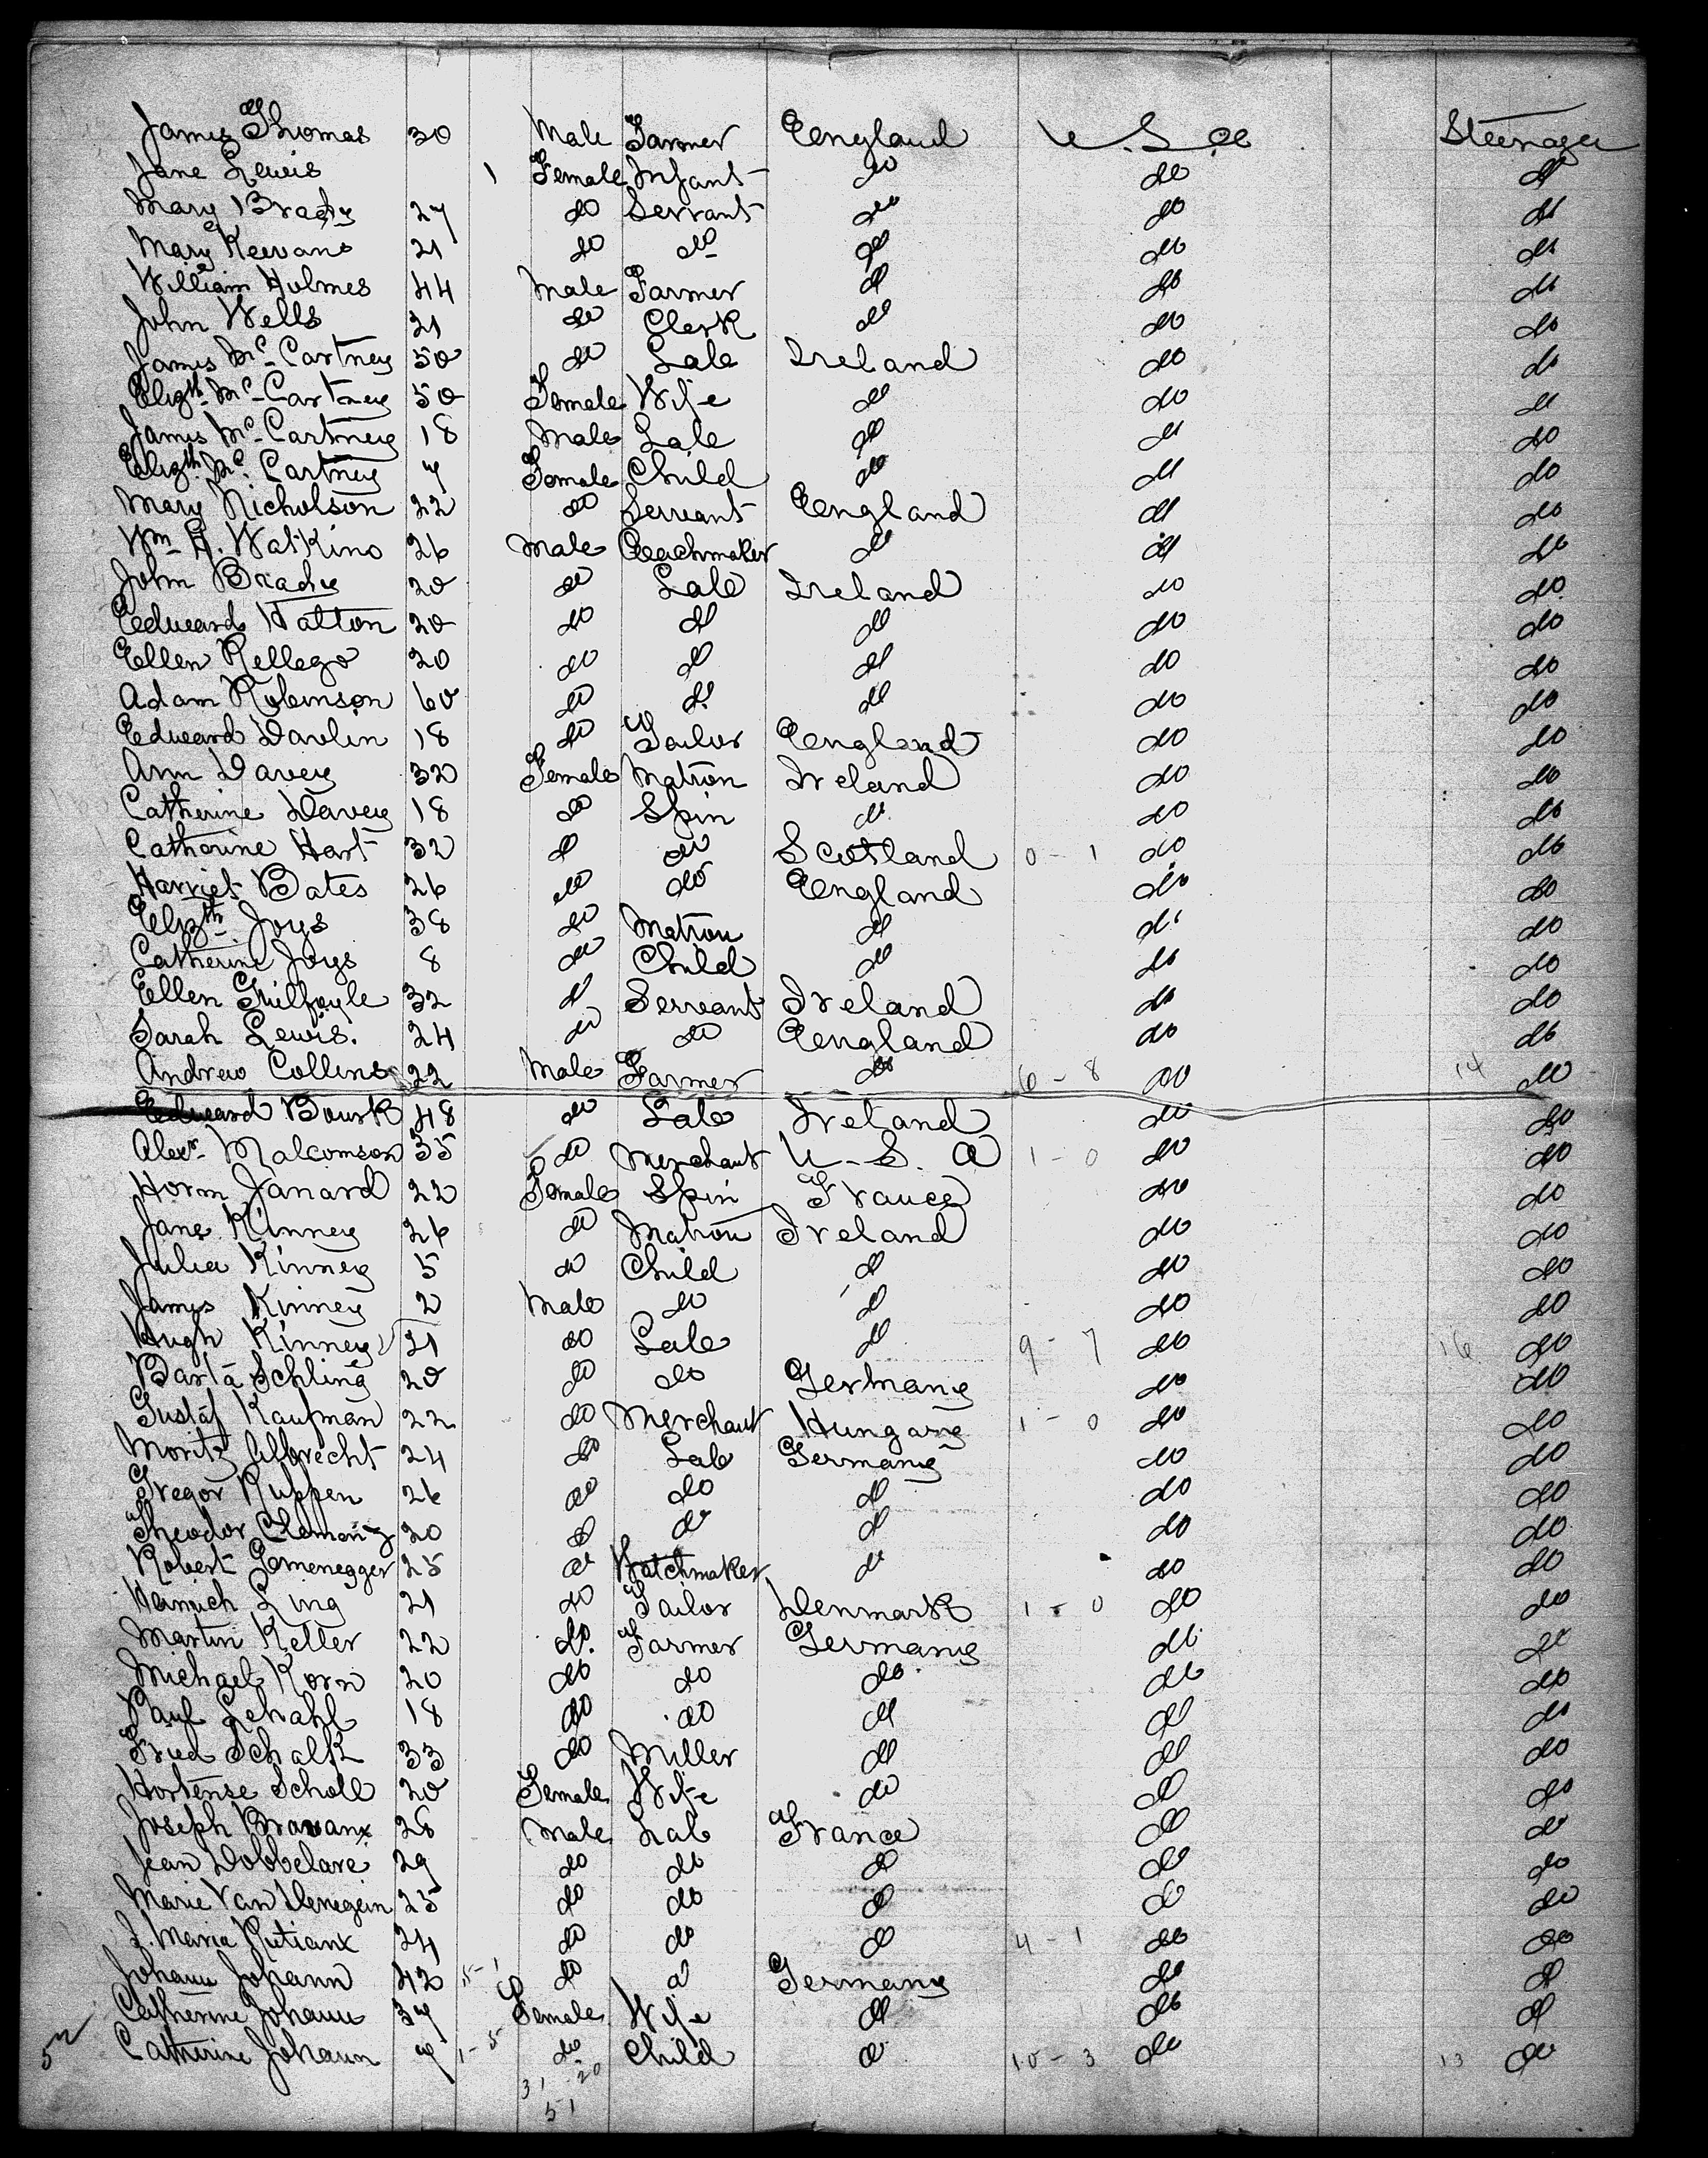 James Thomas 30 Male Farmer England U.S.A Steerage
Jane Lewis 1 Female Infant do do do
Mary Brady 27 do Servant do do do
Mary Keevans 21 do do do do do
William Holmes 44 Male Farmer do do do
John Wells 21 do Clerk do do do
James Mc Cartney 50 do Lab Ireland do do
Elizth Mc Cartney 50 Female Wife do do do
James Mc Cartney 18 Male Lab do do do
Elizth Mc Cartney 7 Female Child do do do
Mary Nicholson 22 do Servant England do do
Wm H. Watkins 26 Male Coachmaker do do do
John Brady 20 do Lab Ireland do do
Edward Hatton 20 do do do do do
Ellen Kellego 20 do do do do do
Adam Robinson 60 do do do do do
Edward Davlin 18 do Tailor England do do
Ann Davey 32 Female Matron Ireland do do
Catherine Davey 18 do Spin do do do
Catherine Hart 32 do do Scotland 0 - 1 do do
Harriet Bates 26 do do England do do
Elizth Joys 38 do Matron do do do
Catherine Joys 8 do Child do do do
Ellen Guilfoyle 32 do Servant Ireland do do
Sarah Lewis. 24 do do England do do
Andrew Collins 22 Male Farmer do 6 - 8 do 14 do
Edward Bourk 48 do Lab Ireland do do
Alexr Malcomson 35 do Merchant U.S.A 1 - 0 do do
Horm Janard 22 Female Spin France do do
Jane Kinney 26 do Matron Ireland do do
Julia Kinney 5 do Child do do do
James Kinney 2 Male do do do do
Hugh Kinney 21 do Lab do 9 - 7 do 16 do
Barta Schling 20 do do Germany do do
Gustaf Kaufman 22 do Merchant Hungary 1 - 0 do do
Moritz Albrecht 24 do Lab Germany do do
Gregor Ruppen 26 do do do do do
Theodor Clemenz 20 do do do do do
Robert Gomenegger 25 do Watchmaker do do do
Heinrich Ling 21 do Tailor Denmark 1 - 0 do do
Martin Keller 22 do. Farmer Germany do do
Michael Korn 20 do do do do do
Paul Lehahl 18 do do do do do
Fried Schalk 33 do Miller do do do
Hortense Scholl 20 Female Wife do do do
Joseph Bravanx 28 Male Lab France do do
Jean Dobbelare 29 do do do do do
Marie Van Denegein 25 do do do do do
J. Maria Rutianx 24 do do do 4 - 1 do do
Johann Johann 42 do do Germany do do
Catherine Johann 37 Female Wife do do do
Catherine Johann 7 1 - 5 do Child do 10 - 3 do 13 do
52
31 - 20
51